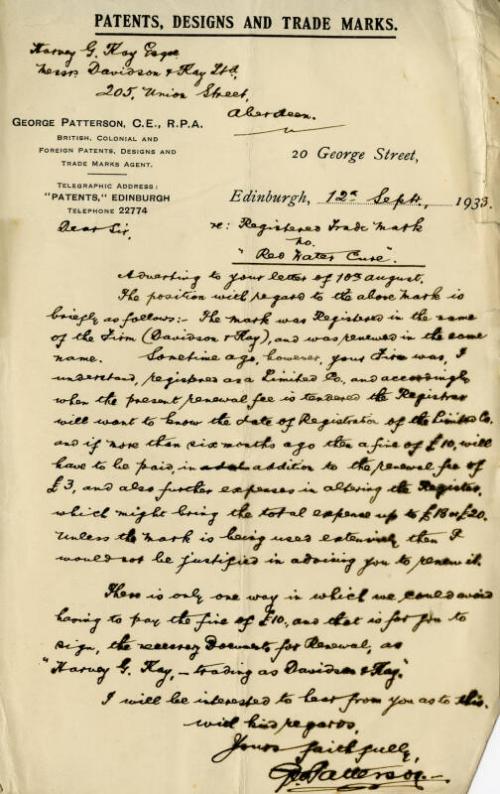 PATENTS, DESIGNS AND TRADE MARKS.
Harvey G. Kay Esqre
Messrs Davidson & Kay Ltd,
205, Union Street,
Aberdeen.
GEORGE PATTERSON, C.E., R.P.A.
BRITISH, COLONIAL AND
FOREIGN PATENTS, DESIGNS AND
TRADE MARKS AGENT.
TELEGRAPHIC ADDRESS:
"PATENTS," EDINBURGH
TELEPHONE 22774
20 George Street,
Edinburgh, 12th Sept, 1933.
Dear Sir,
re: Registered Trade Mark
No.
"Red Water Cure".
Adverting to your letter of 10th August.
The position with regard to the above mark is
briefly as follows:- The mark was Registered in the name
of the Firm (Davidson & Kay), and was renewed in the same
name. Sometime ago, however, your Firm was, I
understand, registered as a Limited Co, and accordingly
when the present renewal fee is tendered the Registrar
will want to know the date of Registration of the Limited Co.
and if more than six months ago then a fine of £10, will
have to be paid, in addition to the renewal fee of
£3, and also further expenses in altering the Register,
which might bring the total expense up to £18 or £20.
Unless the mark is being used extensively then I
would not be justified in advising you to renew it.
There is only one way in which we could avoid
having to pay the fine of £10, and that is for you to
sign, the necessary Documents for Renewal, as
"Harvey G. Kay, - trading as Davidson & Kay."
I will be interested to hear from you as to this.
with kind regards,
Yours faithfully,
Patterson